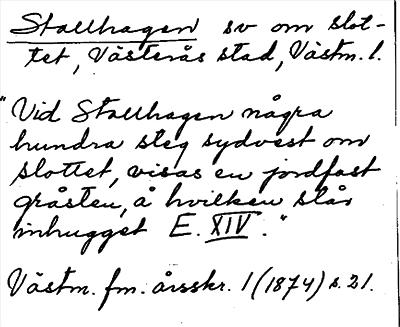 Stallhagen sv om slot-
tet, Västerås stad, Västm. l.
"Vid Stallhagen några
hundra steg sydvest om
slottet, visas en jordfast
gråsten, å hvilken står
inhugget E. XIV."
Västm. fm. årsskr. 1 (1874) s. 21.